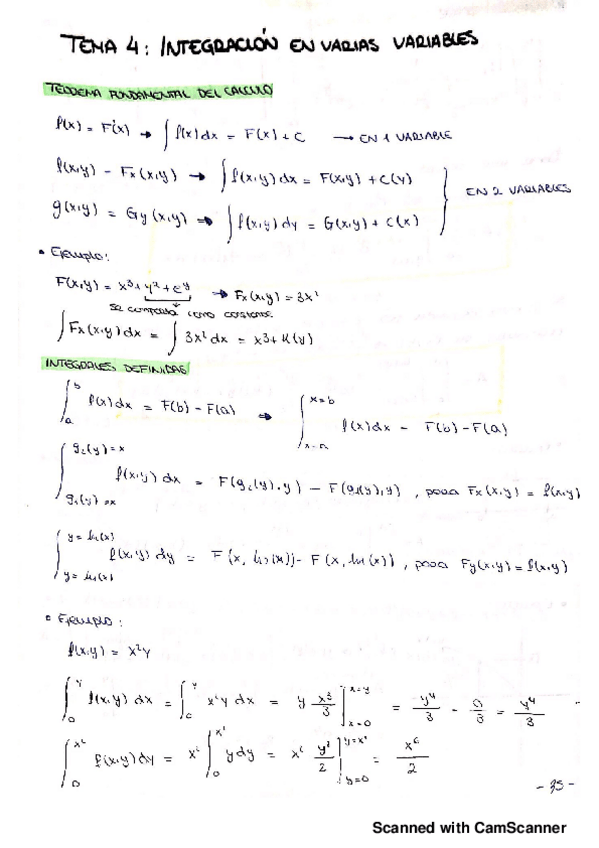 TEMA 4: INTEGRACIÓN EN VARIAS VARIABLES
TEOREMA FUNDAMENTAL DEL CALCULO
f(x) = F'(x) → ∫ f(x) dx = F(x) + C → EN 1 VARIABLE
f(x,y) - Fx (x,y) → ∫ f(x,y) dx = F(x,y) + C(y)
g(x,y) = Gy (x,y) → ∫ f(x,y) dy = G(x,y) + C(x)
EN 2 VARIABLES
• Ejemplo:
F(x,y) = x³ + y² + e^y → Fx(x,y) = 3x²
se comporta como constante
∫ Fx(x,y) dx = ∫ 3x² dx = x³ + K(y)
INTEGRALES DEFINIDAS
∫_a^b f(x) dx = F(b) - F(a) → ∫_{x=a}^{x=b} f(x) dx - F(b) - F(a)
∫_{g₁(y)=x}^{g₂(y)=x} f(x,y) dx = F(g₂(y),y) - F(g₁(y),y) , para Fx(x,y) = f(x,y)
∫_{y=h₁(x)}^{y=h₂(x)} f(x,y) dy = F(x, h₂(x)) - F(x, h₁(x)) , para Fy(x,y) = f(x,y)
• Ejemplo:
f(x,y) = x²y
∫_0^y f(x,y) dx = ∫_0^y x²y dx = y x³/3 |_{x=0}^{x=y} = y⁴/3 - 0/3 = y⁴/3
∫_0^{x²} f(x,y) dy = x² ∫_0^{x²} y dy = x² y²/2 |_{y=0}^{y=x²} = x⁶/2
- 35 -
Scanned with CamScanner